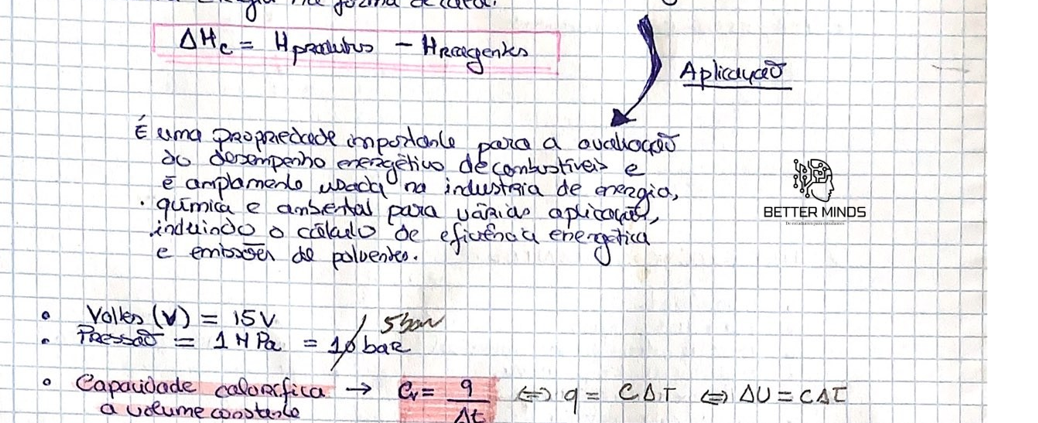 na forma de calor.
ΔHc = Hprodutos − Hreagentes
Aplicação
É uma propriedade importante para a avaliação
do desempenho energético de combustíveis e
é amplamente usada na industria de energia,
química e ambental para várias aplicação,
incluindo o cálculo de eficiência energética
e emissões de poluentes.
BETTER MINDS
• Voltes (V) = 15V
5 bar
• Pressão = 1 MPa = 10 bar
• Capacidade calorífica → Cv = q / Δt ⇔ q = CΔT ⇔ ΔU = CΔT
a volume constante